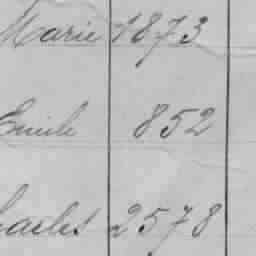 Marie 1873
Emile 852
harles 2578